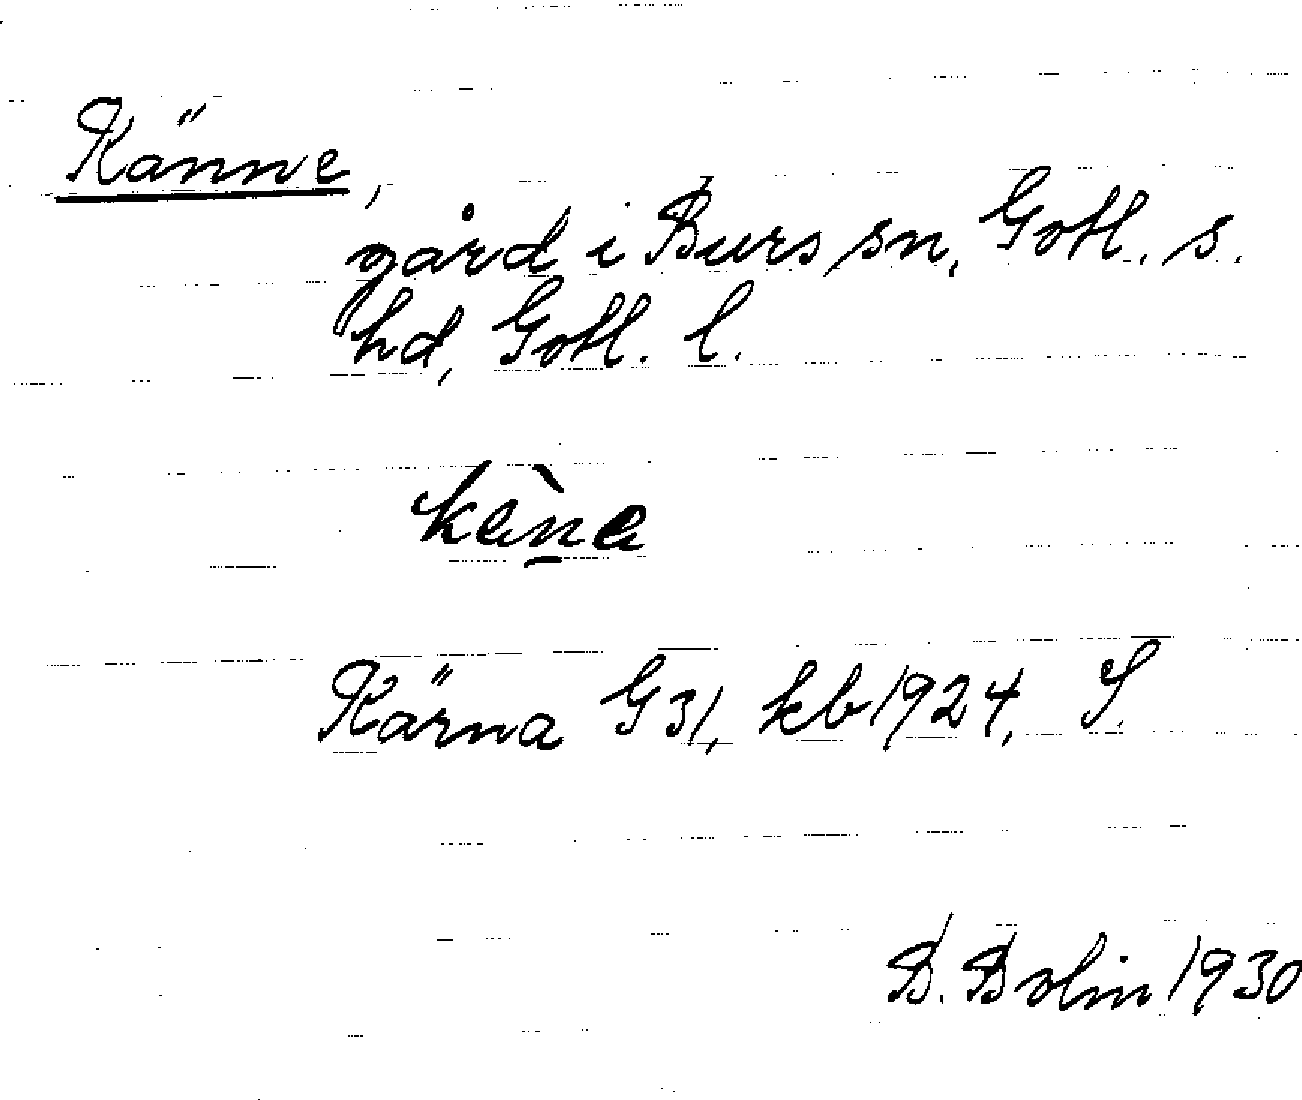 Känne,
gård i Burs sn, Gotl. s.
hd, Gotl. l.
kän̲e
Kärna G 31, kb 1924, S.
B. Bolin 1930